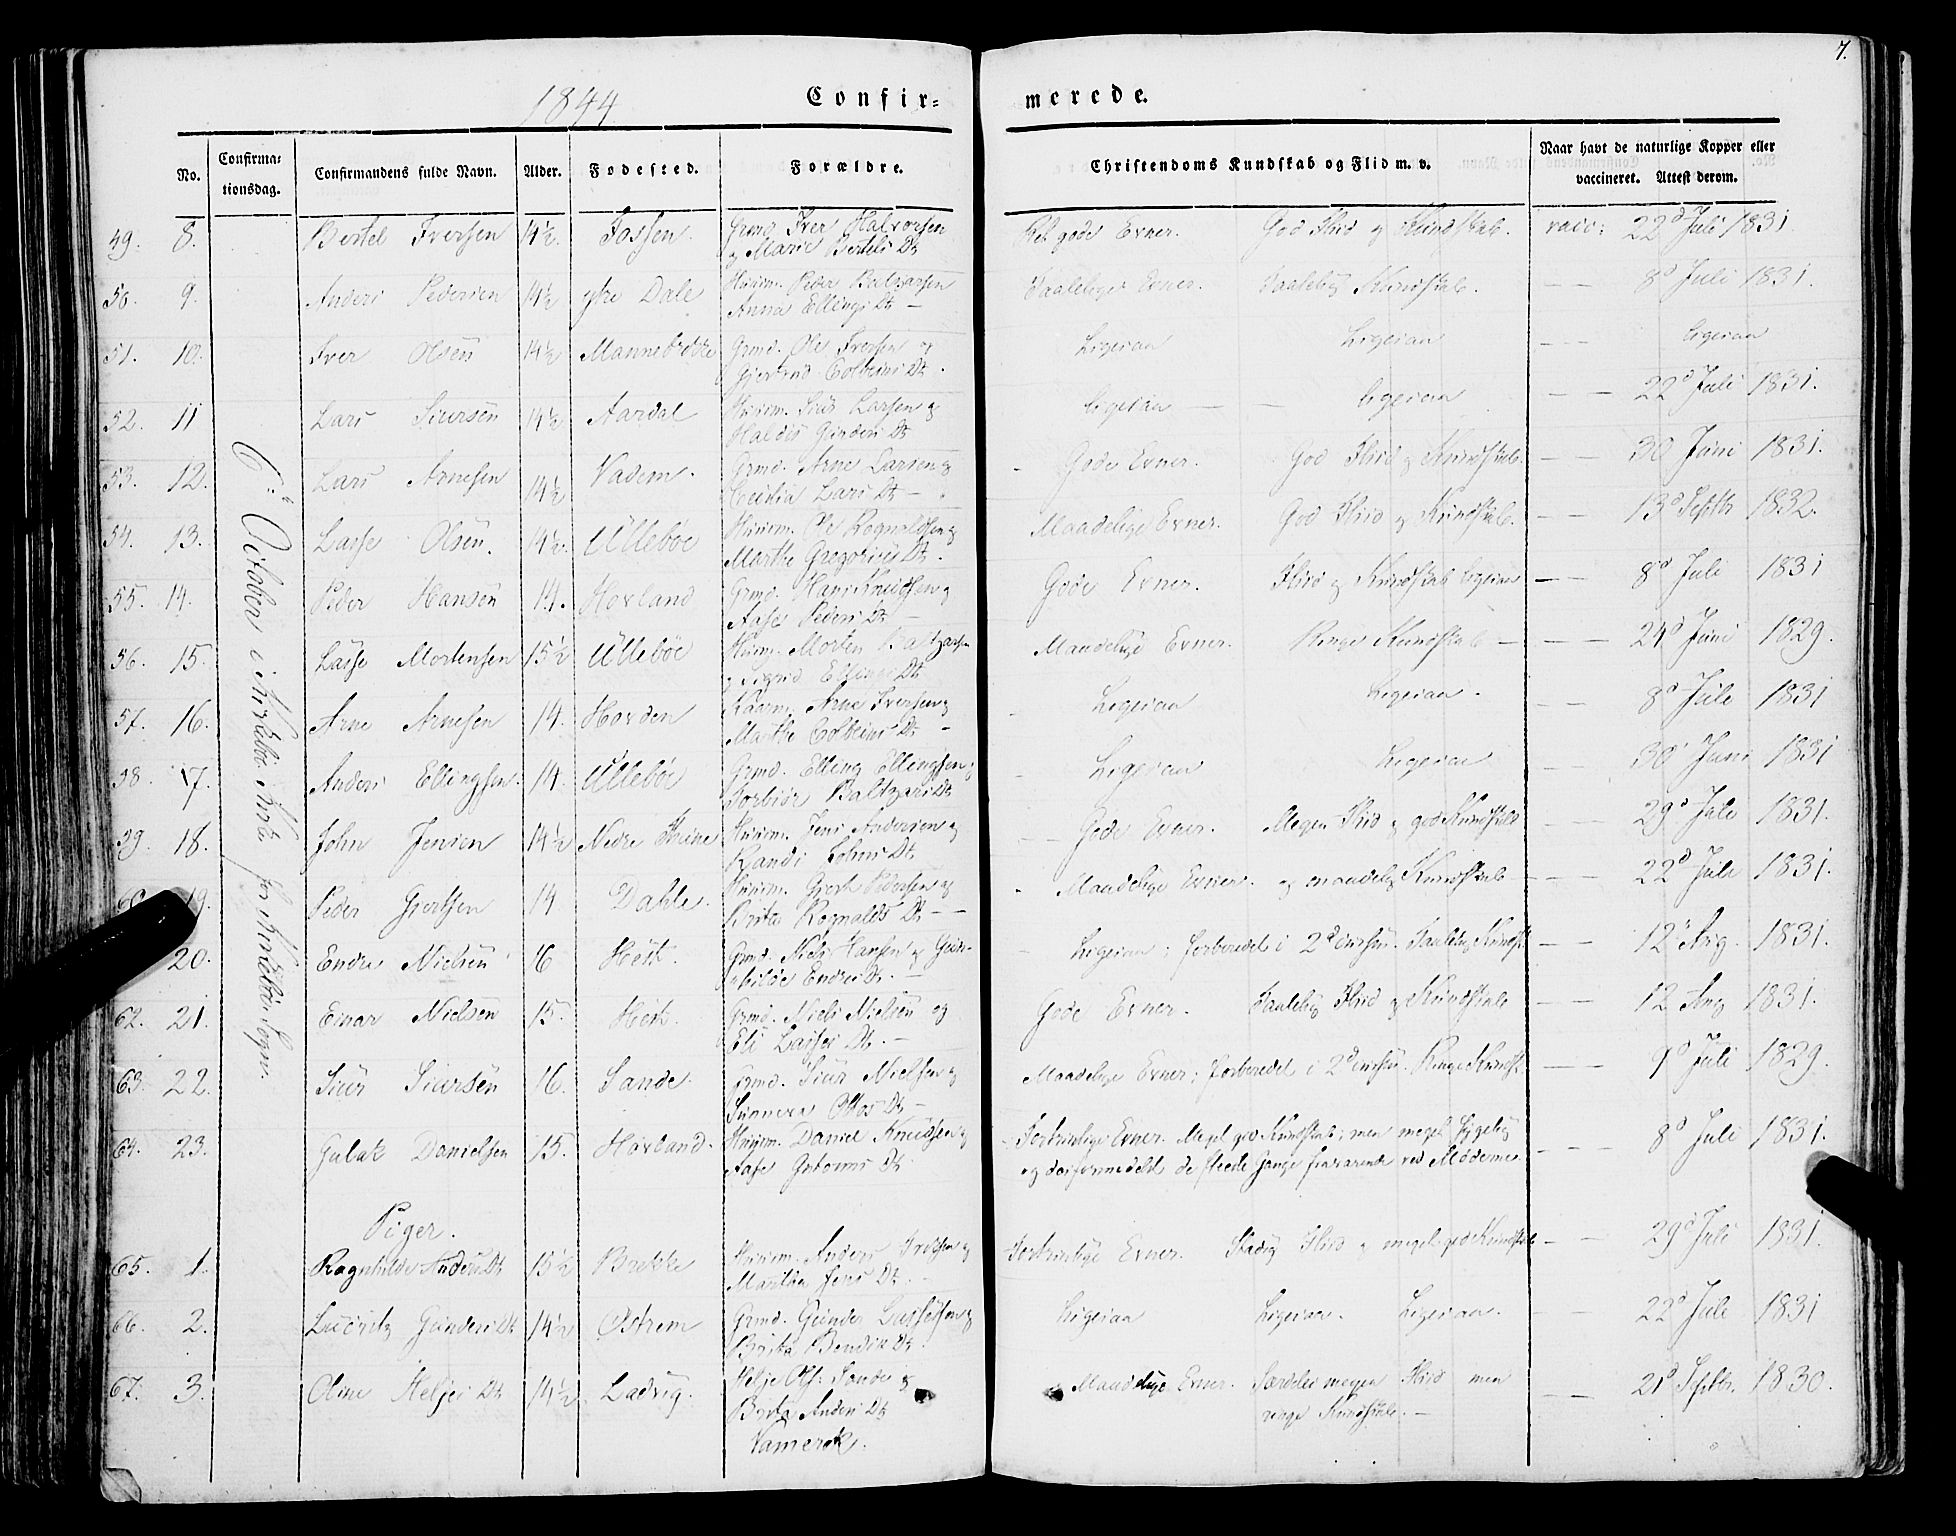 7.
1844 Confir= merede.
No. Confirma= tionsdag. Confirmandens fulde Navn. Alder. Fødested. Forældre. Christendoms Kundskab og Flid m. v. Naar havt de naturlige Kopper eller vaccineret. Attest derom.
6te October i Kirkebø Kirke for Kirkebø Sogn.
49. 8. Bertel Iversen 14½. Fossen. Grmd Iver Halvorsen og Marie Bertels Dt Ret gode Evner. God Flid og Kundskab. vacc: 22d Juli 1831.
50. 9. Anders Pedersen 14½ ytre Dale Huusm. Peder Baltzarsen Anna Ellings Dt — Taalelige Evner. Taalelig Kundskab. — — 8d Juli 1831.
51. 10. Iver Olsen 14½ Mannebrekke Grmd. Ole Iversen og Gjertrud Colbeins Dt. Ligesaa Ligesaa — — ligesaa
52. 11 Lars Siursen 14½ Aardal Huusm. Siur Larsen og Haldis Gunders Dt ligesaa — — ligesaa — — 22d Juli 1831.
53. 12. Lars Arnesen 14½ Vadem. Grmd. Arne Larsen og Cecilia Lars Dt — Gode Evner. God Flid og Kundskab. — — 30 Juni 1831.
54. 13. Lasse Olsen. 14½. Ullebøe Huusm. Ole Rognaldsen og Marthe Gregorius Dt. Maadelige Evner. God Flid og Kundskab. — — 13d Septbr 1832.
55. 14. Peder Hansen 14. Hovland Grmd. Hans Knudsen og Aase Peders Dt — Gode Evner. Flid og Kundskab ligesaa — — 8d Juli 1831
56. 15. Lasse Mortensen 15½ Ullebøe Huusm. Morten Baltzarsen og Sigrid Ellings Dt Maadelige Evner. Ringe Kundskab — — — 24d Juni 1829.
57. 16. Arne Arnesen 14. Hovden Arne Iversen og Marthe Colbeins Dt — Ligesaa Ligesaa. — — 8d Juli 1831
58. 17. Anders Ellingsen. 14. Ullebøe Grmd. Elling Ellingsen og Torbiør Baltzars Dt Ligesaa Ligesaa — — 30 Juni 1831
59. 18. John Jensen 14½ Nedre Huusm. Jens Andersen og Randi Johns Dt Gode Evner. Megen Flid og god Kundskab — — 29d Juli 1831.
60. 19. Peder Gjertsen 14 Dahle. Huusm. Gjert Pedersen og Brita Rognalds Dt — — Maadelige Evner. og maadelig Kundskab — — 22d Juli 1831.
20. Endre Nielsen 16 Grmd. Niels Hansen og Gunhilde Endres Dt. — Ligesaa; forberedet i 2d Taalelig Kundsk — — 12t Aug. 1831.
62. 21. Einar Nielsen 15. Grmd. Niels Nielsen og Eli Lasses Dt. — Gode Evner. Taalelig Flid og Kundskab — — 12 Aug 1831.
63. 22. Siur Siursen 16. Sande. Grmd. Siur Nielsen og Sunneva Ottos Dt — Maadelige Evner; forberedet i 2d Ringe Kundsk. — — 9d Juli 1829.
64. 23. Gulak Danielsen 15. Hovland. Huusm. Daniel Knudsen og Aase Guttorms Dt Fortrinlige Evner. Meget god Kundskab; men meget sygelig og desformedelst de fleeste Gange fraværende ved Møderne — — 8d Juli 1831.
Piger.
65. 1. Ragnhilde Anders Dt 15½ Brekke Huusm. Anders og Marthe Jens Dt. — Fortrinlige Evner. Stadig Flid og meget god Kundskab — — 29d Juli 1831.
66. 2. Gunders Dt 14½ Østrem Grmd. Gunder Lassesen og Brita Bendix Dt. Ligesaa Ligesaa. Ligesaa. — — 22d Juli 1831
67. 3. Oline Heljes Dt 14½. Ladvig. Helje Ols: Sande og Brita Anders Dt Maadelige Evner. Særdeles megen Flid men ringe Kundskab. — — — 21d Septbr. 1830.